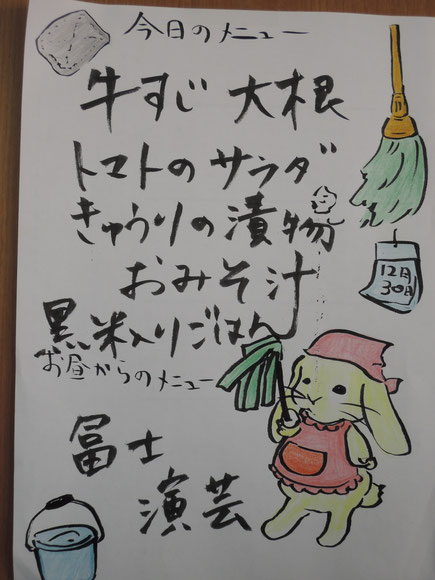 今日のメニュー
牛すじ 大根
トマトのサラダ
きゅうりの漬物
おみそ汁
黒米入りごはん
お昼からのメニュー
冨士
演芸
12月
30日